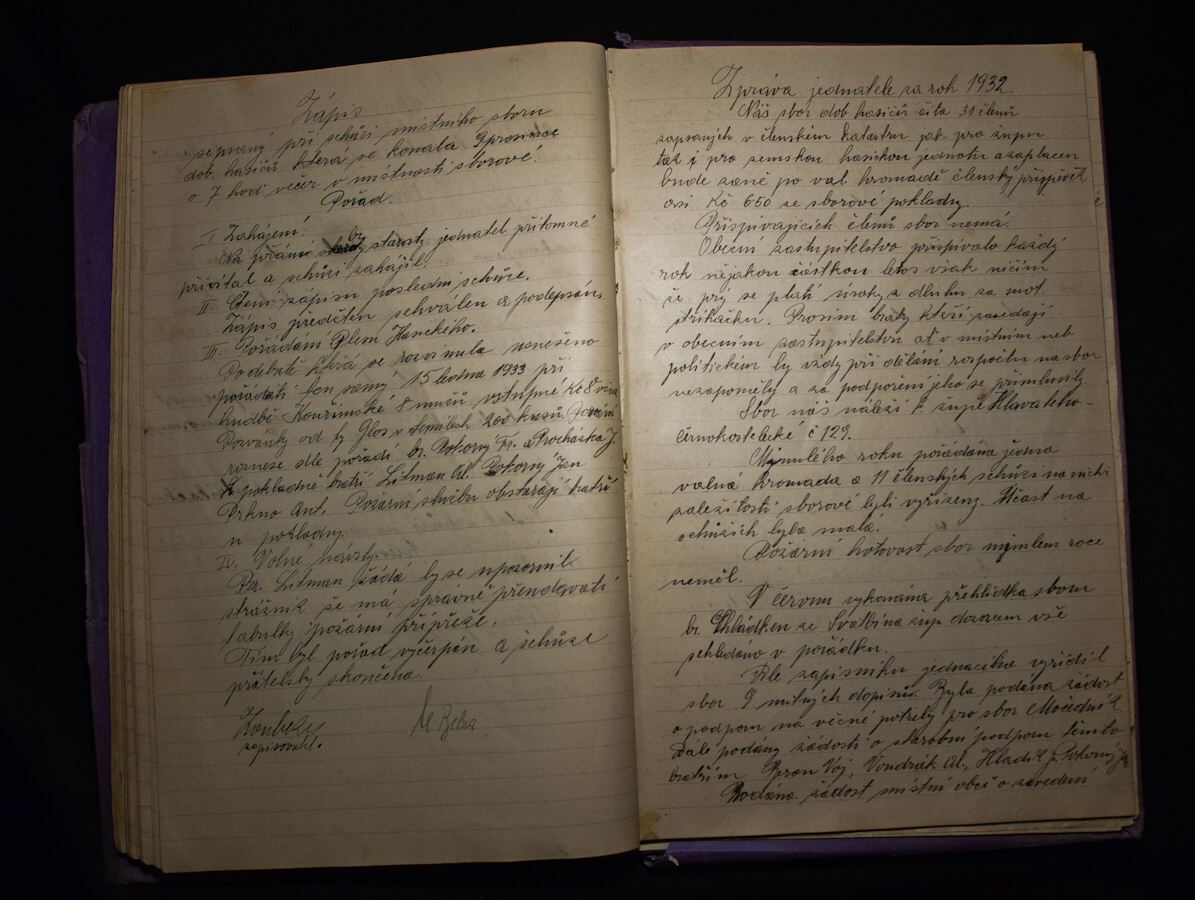 Zápis
sepsaný při schůzi místního sboru
dob. hasičů která se konala 9 prosince
o 7 hod večer v místnosti sborové.
Pořad.
I Zahájení.
Na přání br. starosty jednatel přítomné
přivítal a schůzi zahájil.
II. Čtení zápisu poslední schůze.
Zápis předčten schválen a podepsán.
III. Pořádání Plesu Hasičkého.
Po debatě která se rozvinula usneseno
pořádati ten samý 15 ledna 1933 při
hudbě Kouřimské 8 mužů vstupné Kč 8
Pozvánky od fy Glos v Semilech 200 kusů
roznese dle pořadí br. Pokorný Fr. a Procházka J.
K pokladně bratři Litman Al. Pokorný Jan
Prkno Ant. Požární službu obstarají bratři
u pokladny.
IV. Volné návrhy.
Br. Litman žádá by se upozornil
strážník že má správně předávati
tabulky požární přípřeže.
Tím byl pořad vyčerpán a schůze
přátelsky skončena.
zapisovatel.
Zpráva jednatele za rok 1932.
Náš sbor dob hasičů čítá 31 členů
zapsaných v členském katastru jak pro župu
též i pro zemskou hasičkou jednotu a zaplacen
bude zaně po val. hromadě členský příspěvek
asi Kč 650 ze sborové pokladny.
Přispívajících členů sbor nemá.
Obecní zastupitelstvo přispívalo každý
rok nějakou částkou letos však ničím
že prý se platí úroky z dluhu za mot.
stříkačku. Prosím bratry kteří zasedají
v obecním zastupitelstvu ať v místním neb
politickém by vždy při dělání rozpočtu na sbor
nezapoměly a za podporení jeho se přimluvily.
Sbor náš náleží k župě Hlavatého-
černokostelecké č 129.
Minulého roku pořádána jedna
valná hromada a 11 členských schůzí na nichž
záležitosti sborové byli vyřízeny. Účast na
schůzích byla malá.
Požární hotovost sbor minulem roce
neměl.
V červnu vykonána přehlídka sboru
br. Chládken ze Svatbína žup dozorcem vše
schledáno v pořádku.
Dle zápisníku jednacího vyřídil
sbor 9 různých dopisů. Byla podána žádost
o podporu na věcné potřeby pro sbor
Dále podány žádosti o starobní podporu těmto
bratřím Beran Voj, Vondrák Al., Hladík J. Pokorný J
Podána žádost místní obci o zavedení